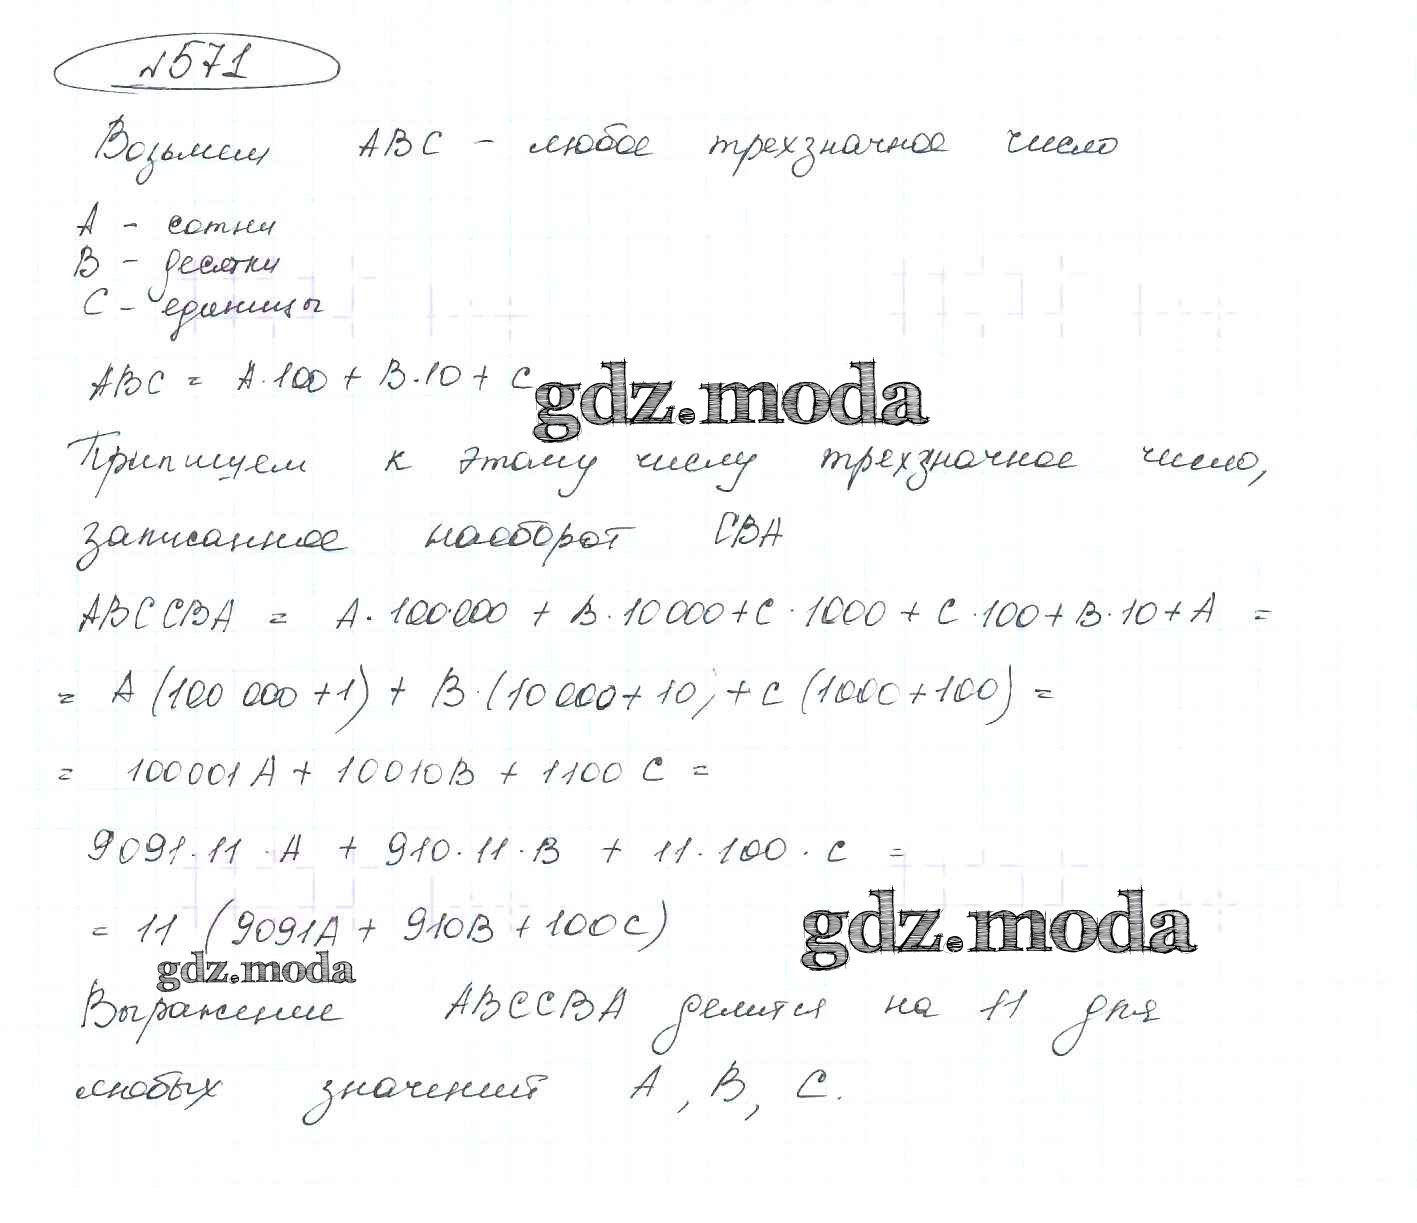 №571
Возьмем ABC - любое трехзначное число
A - сотни
B - десятки
C - единицы
ABC = A·100 + B·10 + C
gdz.moda
Припишем к этому числу трехзначное число,
записанное наоборот CBA
ABCCBA = A·100000 + B·10000+C·1000 + C·100+B·10+A =
= A (100 000 +1) + B·(10000+10) + C (1000+100) =
= 100001A + 10010B + 1100 C =
9091·11·A + 910·11·B + 11·100·C =
= 11 (9091A + 910B + 100C)
gdz.moda
gdz.moda
Выражение ABCCBA делится на 11 для
любых значений A, B, C.